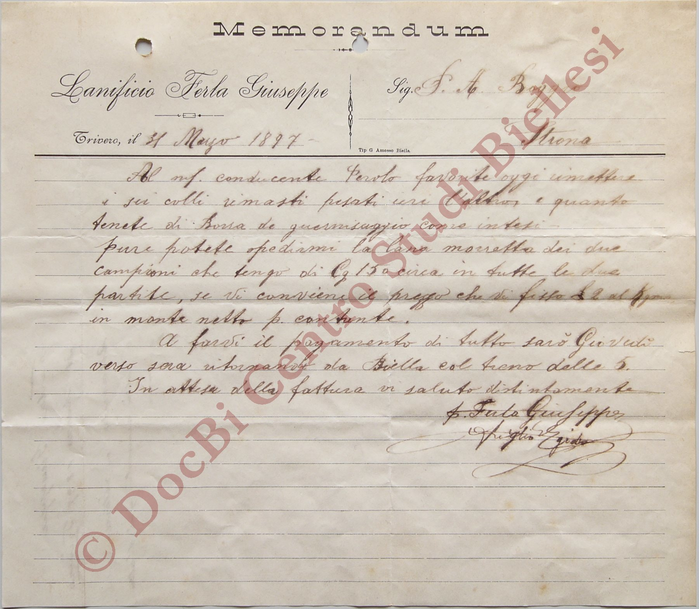 Memorandum
Lanificio Ferla Giuseppe
Sig. F. A.
Trivero, il 31 Marzo 1897
Strona
Tip. G. Amosso Biella
Al conducente Perolo favorite oggi rimettere
i sei colli rimasti pesati ieri l'altro, e quanto
tenete di Borra de come intesi
Pure potete spedirmi la lana moretta dei due
campioni che tengo di Cg 150 circa in tutte le due
partite, se vi conviene il prezzo che vi fisso £ 2 al
in monte netto p. contante.
A farvi il pagamento di tutto sarò Giovedì
verso sera ritornando da Biella col treno delle 5.
In attesa della fattura vi saluto distintamente
p. Ferla Giuseppe
il figlio
© DocBi Centro Studi Biellesi